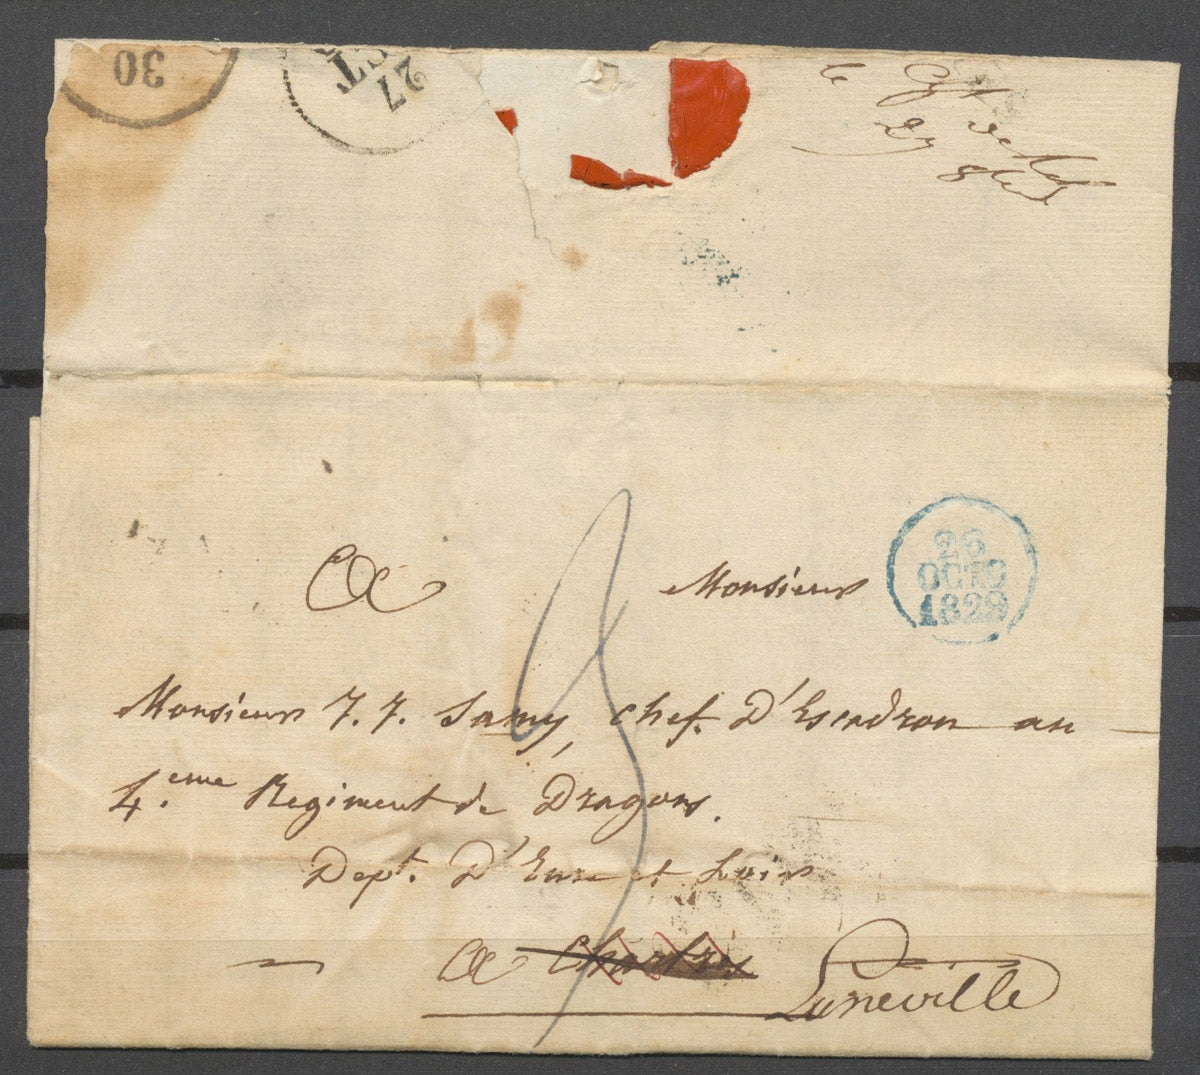 30
27
le
27 8bre
A Monsieur
25
OCTO
1829
Monsieur J. J. Samy, chef D'Escadron au
4.eme Regiment de Dragons.
Dept. D'Eure et Loir
A Chartres Luneville